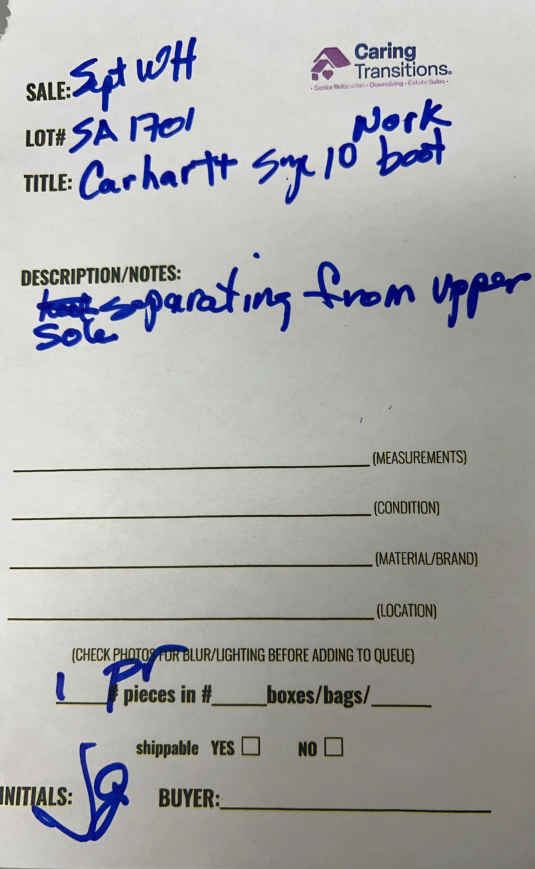 Caring
Transitions.
• Senior Relocation • Downsizing • Estate Sales •
SALE: Sept WH
LOT# SA 1701
Work
TITLE: Carhartt Size 10 boot
DESCRIPTION/NOTES:
separating from upper
Sole
(MEASUREMENTS)
(CONDITION)
(MATERIAL/BRAND)
(LOCATION)
(CHECK PHOTOS FOR BLUR/LIGHTING BEFORE ADDING TO QUEUE)
1 pr
# pieces in #_____boxes/bags/______
shippable YES ☐ NO ☐
INITIALS: JQ BUYER: